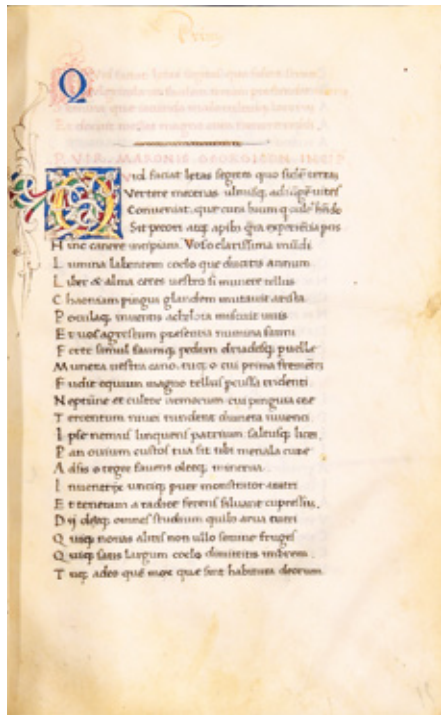 Prim
Q
P. VIR. MARONIS GEORGICON INCIP
Vid faciat letas segetes quo sidere terras
Vertere mecenas ulmisq adiūgē uites
Conueniat, que cura boum q cult hndo
Sit pecori atq apibs q̄ta experiētia pcis
Hinc canere incipiam. Vos o clarissima mūdi
Lumina labentem coelo que ducitis annum
Liber & alma ceres uestro si munere tellus
Chaoniam pingui glandem mutauit arista
Poculaq inuentis acheloia miscuit uuis
Et uos agrestum presentia numina fauni
Ferte simul fauniq pedem driadesq puelle
Munera uestra cano. tuq o cui prima frementē
Fudit equum magno tellus pcussa tridenti
Neptune et cultor nemorum cui pinguia cee
Tercentum niuei tundent dumeta iuuenci
Ipse nemus linquens patrium saltusq licei
Pan ouium custos tua sit tibi menala cure
Adsis o tegee fauens oleeq minerua
Inuentrix uncíq puer monstrator aratri
Et teneram a radice ferens siluane cupressum
Dij deeq omnes studium quibs arua tueri
Quiq nouas alitis non ullo semine fruges
Quiq satis largum coelo dimittitis imbrem
Tuq adeo quē mox que sint habitura deorum